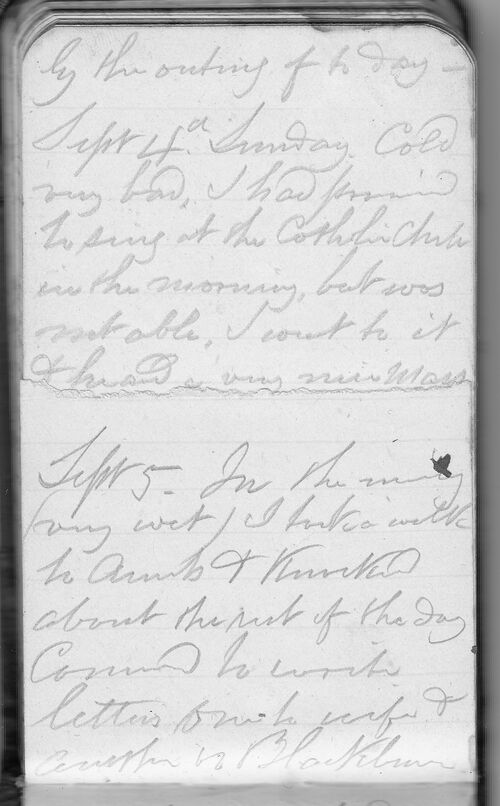 by the outing of to day -
Sept 4th Sunday. Cold
very bad, I had promised
to sing at the Catholic Church
in the morning, but was
not able, I went to it
& heard a very nice Mass
Sept 5. In the morning
(very wet) I took a walk
to Aunts & Knocked
about the rest of the day
Commenced to write
letters one to wife &
another to Blackburn